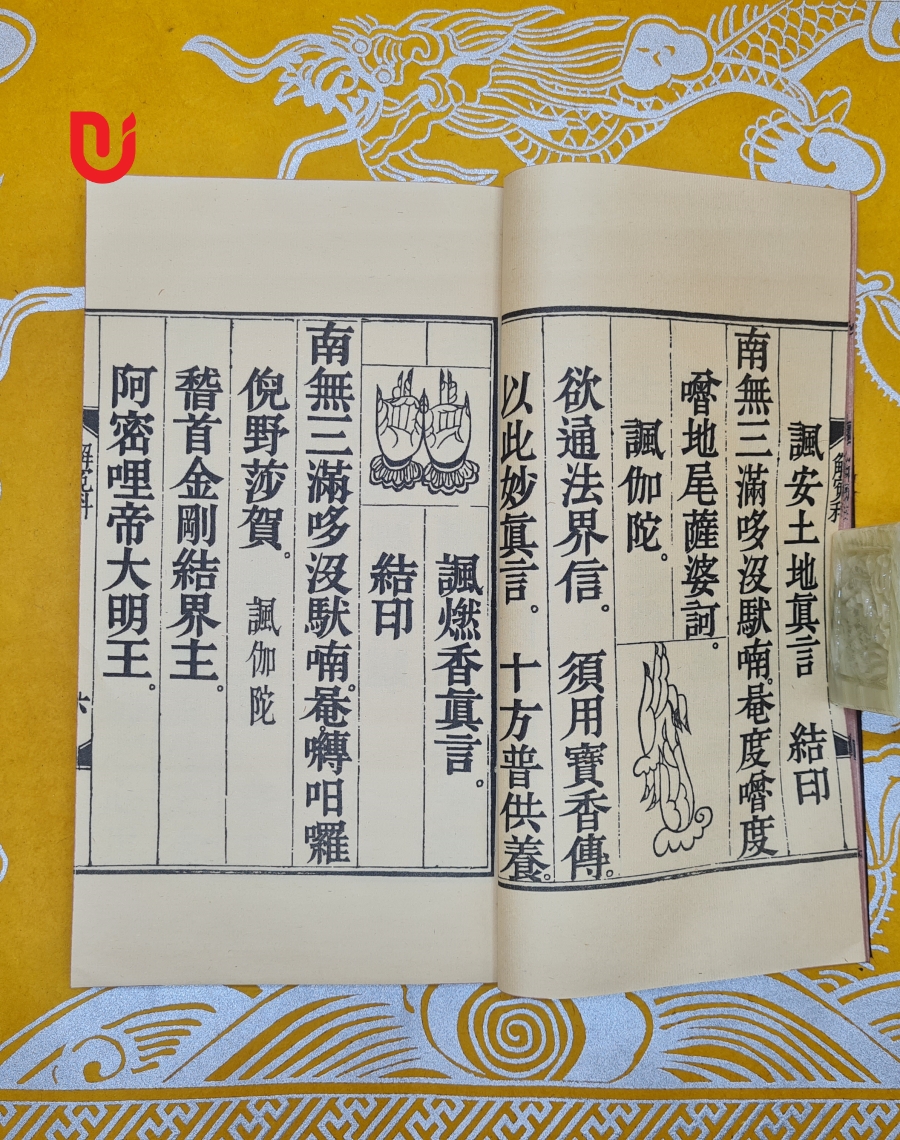 諷安土地真言 結印
南無三滿哆沒馱喃。菴度嚕度
嚕地尾薩婆訶。
諷伽陀。
欲通法界信。 須用寶香傳。
以此妙真言。 十方普供養。
諷燃香真言。
結印
南無三滿哆沒馱喃。菴嚩咀囉
倪野莎賀。 諷伽陀
稽首金剛結界主。
阿密哩帝大明王。
六